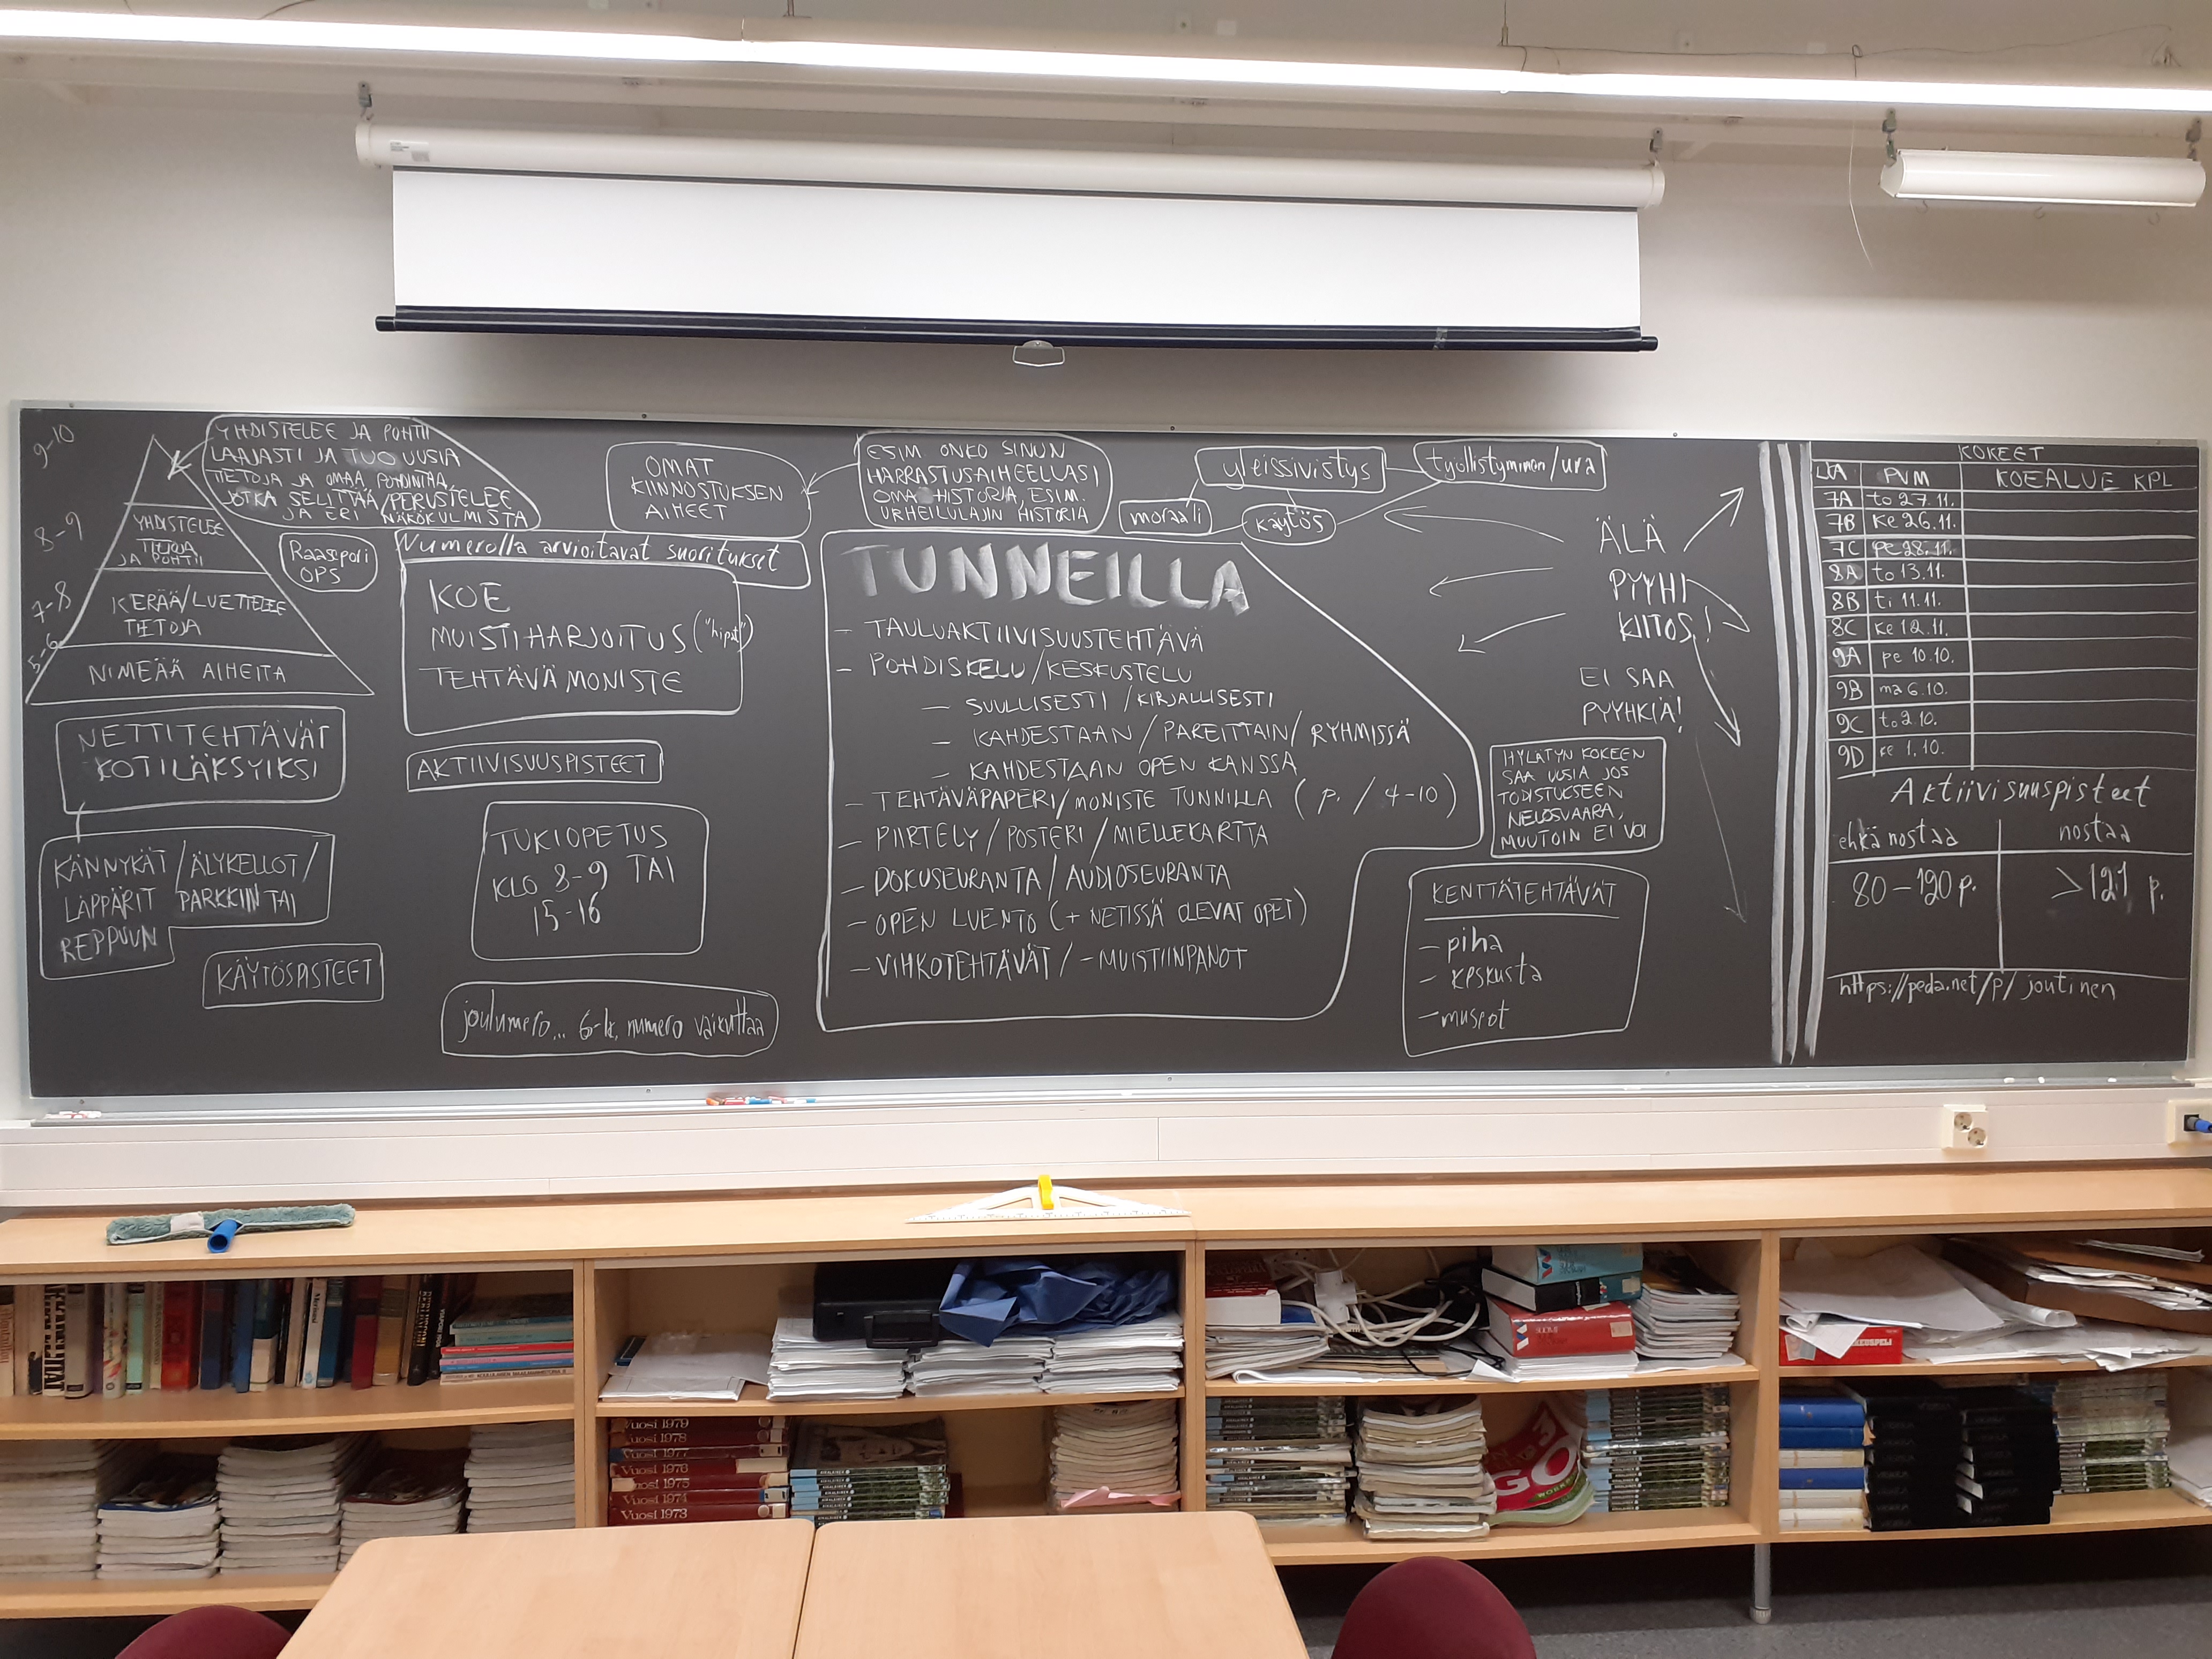 9-10
YHDISTELEE JA POHTII
LAAJASTI JA TUO UUSIA
TIETOJA JA OMAA POHDINTAA,
JOTKA SELITTÄÄ/PERUSTELEE
JA ERI NÄKÖKULMISTA
8-9
YHDISTELEE
TIETOJA
JA POHTII
7-8
KERÄÄ/LUETTELEE
TIETOJA
5-6
NIMEÄÄ AIHEITA
Raasepori
OPS
NETTITEHTÄVÄT
KOTILÄKSYIKSI
KÄNNYKÄT/ÄLYKELLOT/
LÄPPÄRIT PARKKIIN TAI
REPPUUN
KÄYTÖSPISTEET
OMAT
KIINNOSTUKSEN
AIHEET
Numerolla arvioitavat suoritukset
KOE
MUISTIHARJOITUS ("hipat")
TEHTÄVÄMONISTE
AKTIIVISUUSPISTEET
TUKIOPETUS
KLO 8-9 TAI
15-16
joulumero... 6-lk. numero vaikuttaa
ESIM. ONKO SINUN
HARRASTUSAIHEELLASI
OMA HISTORIA, ESIM.
URHEILULAJIN HISTORIA
yleissivistys
työllistyminen/ura
moraali
käytös
TUNNEILLA
- TAULUAKTIIVISUUSTEHTÄVÄ
- POHDISKELU/KESKUSTELU
- SUULLISESTI/KIRJALLISESTI
- KAHDESTAAN/PAREITTAIN/RYHMISSÄ
- KAHDESTAAN OPEN KANSSA
- TEHTÄVÄPAPERI/MONISTE TUNNILLA (p. / 4-10)
- PIIRTELY/POSTERI/MIELLEKARTTA
- DOKUSEURANTA/AUDIOSEURANTA
- OPEN LUENTO (+ NETISSÄ OLEVAT OPET)
- VIHKOTEHTÄVÄT/-MUISTIINPANOT
ÄLÄ
PYYHI
KIITOS!
EI SAA
PYYHKIÄ!
HYLÄTYN KOKEEN
SAA UUSIA JOS
TODISTUKSEEN
NELOSVAARA,
MUUTOIN EI VOI
KENTTÄTEHTÄVÄT
- piha
- keskusta
- museot
KOKEET
LKA PVM KOEALUE KPL
7A to 27.11.
7B ke 26.11.
7C pe 28.11.
8A to 13.11.
8B ti 11.11.
8C ke 12.11.
9A pe 10.10.
9B ma 6.10.
9C to 2.10.
9D ke 1.10.
Aktiivisuuspisteet
ehkä nostaa nostaa
80-120 p. >121 p.
https://peda.net/p/joutinen
Vuosi 1979
Vuosi 1978
Vuosi 1977
Vuosi 1976
Vuosi 1975
Vuosi 1974
Vuosi 1973
GO